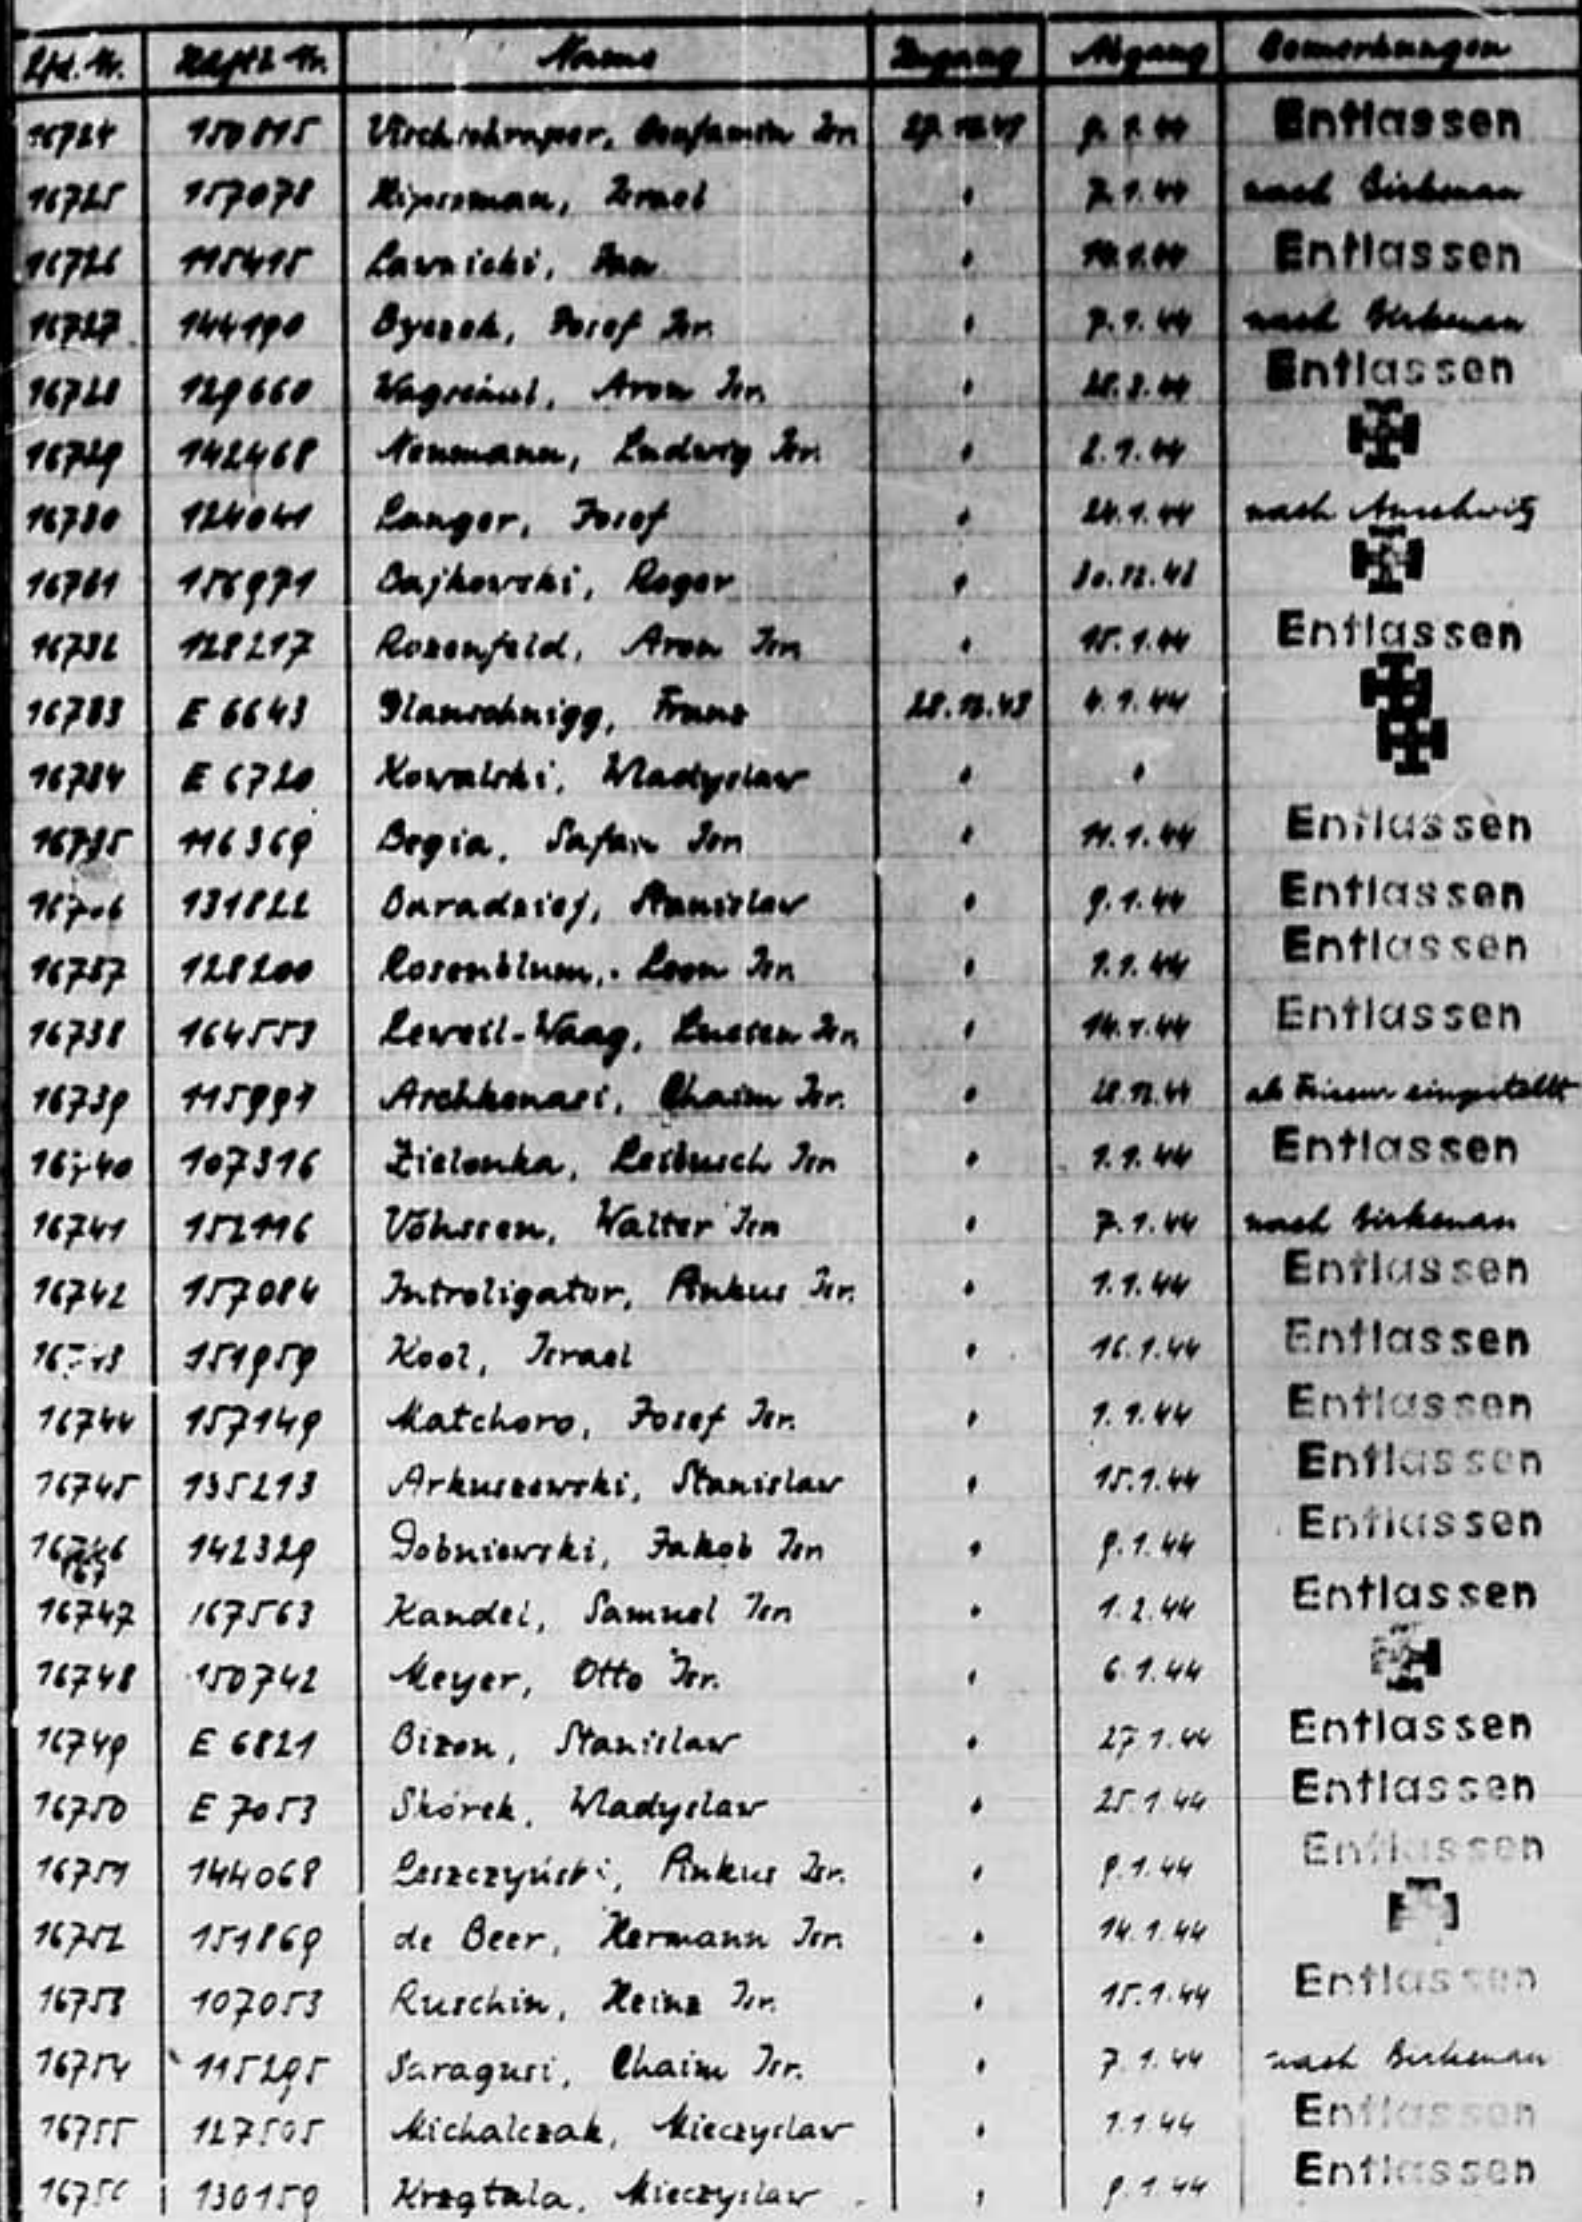 Lfd. Nr. Häftl. Nr. Name Zugang Abgang Bemerkungen
16724 150815 Isr. Entlassen
16725 157078 Israel " 7.1.44 nach Birkenau
16726 115415 Lawnicki, Jan " Entlassen
16727 144190 Josef Isr. " 7.1.44 nach Birkenau
16728 129660 Aron Isr. " Entlassen
16729 142468 Neumann, Ludwig Isr. " 2.1.44
16730 124041 Langer, Josef " 24.1.44 nach Auschwitz
16731 156971 Bajkowski, Roger " 30.12.43
16732 128217 Rozenfeld, Aron Isr. " 15.1.44 Entlassen
16733 E 6643 Glanschnigg, Franz 28.12.43 4.1.44
16734 E 6720 Kowalski, Wladyslaw " "
16735 116369 Begia, Isr. " 11.1.44 Entlassen
16736 131822 Baradziej, Stanislaw " 9.1.44 Entlassen
16737 128200 Rosenblum, Leon Isr. " 1.1.44 Entlassen
16738 164553 Lucien Isr. " 14.1.44 Entlassen
16739 115991 Aschkenasi, Chaim Isr. " als Friseur eingestellt
16740 107316 Zielonka, Leibusch Isr. " 1.1.44 Entlassen
16741 152116 Vöhssen, Walter Isr. " 7.1.44 nach Birkenau
16742 157084 Introligator, Pinkus Isr. " 1.1.44 Entlassen
16743 151959 Kool, Israel " 16.1.44 Entlassen
16744 157149 Matchoro, Josef Isr. " 1.1.44 Entlassen
16745 135213 Arkuszewski, Stanislaw " 15.1.44 Entlassen
16746 142329 Dobniewski, Jakob Isr. " 9.1.44 Entlassen
16747 167563 Kandel, Samuel Isr. " 1.2.44 Entlassen
16748 150742 Meyer, Otto Isr. " 6.1.44
16749 E 6821 Bizon, Stanislaw " 27.1.44 Entlassen
16750 E 7053 Skórek, Wladyslaw " 25.1.44 Entlassen
16751 144068 Leszczyński, Pinkus Isr. " 9.1.44 Entlassen
16752 151869 de Beer, Hermann Isr. " 14.1.44
16753 107053 Ruschin, Heinz Isr. " 15.1.44 Entlassen
16754 115295 Saragusi, Chaim Isr. " 7.1.44 nach Birkenau
16755 127505 Michalczak, Mieczyslaw " 1.1.44 Entlassen
16756 130159 Mieczyslaw " 9.1.44 Entlassen